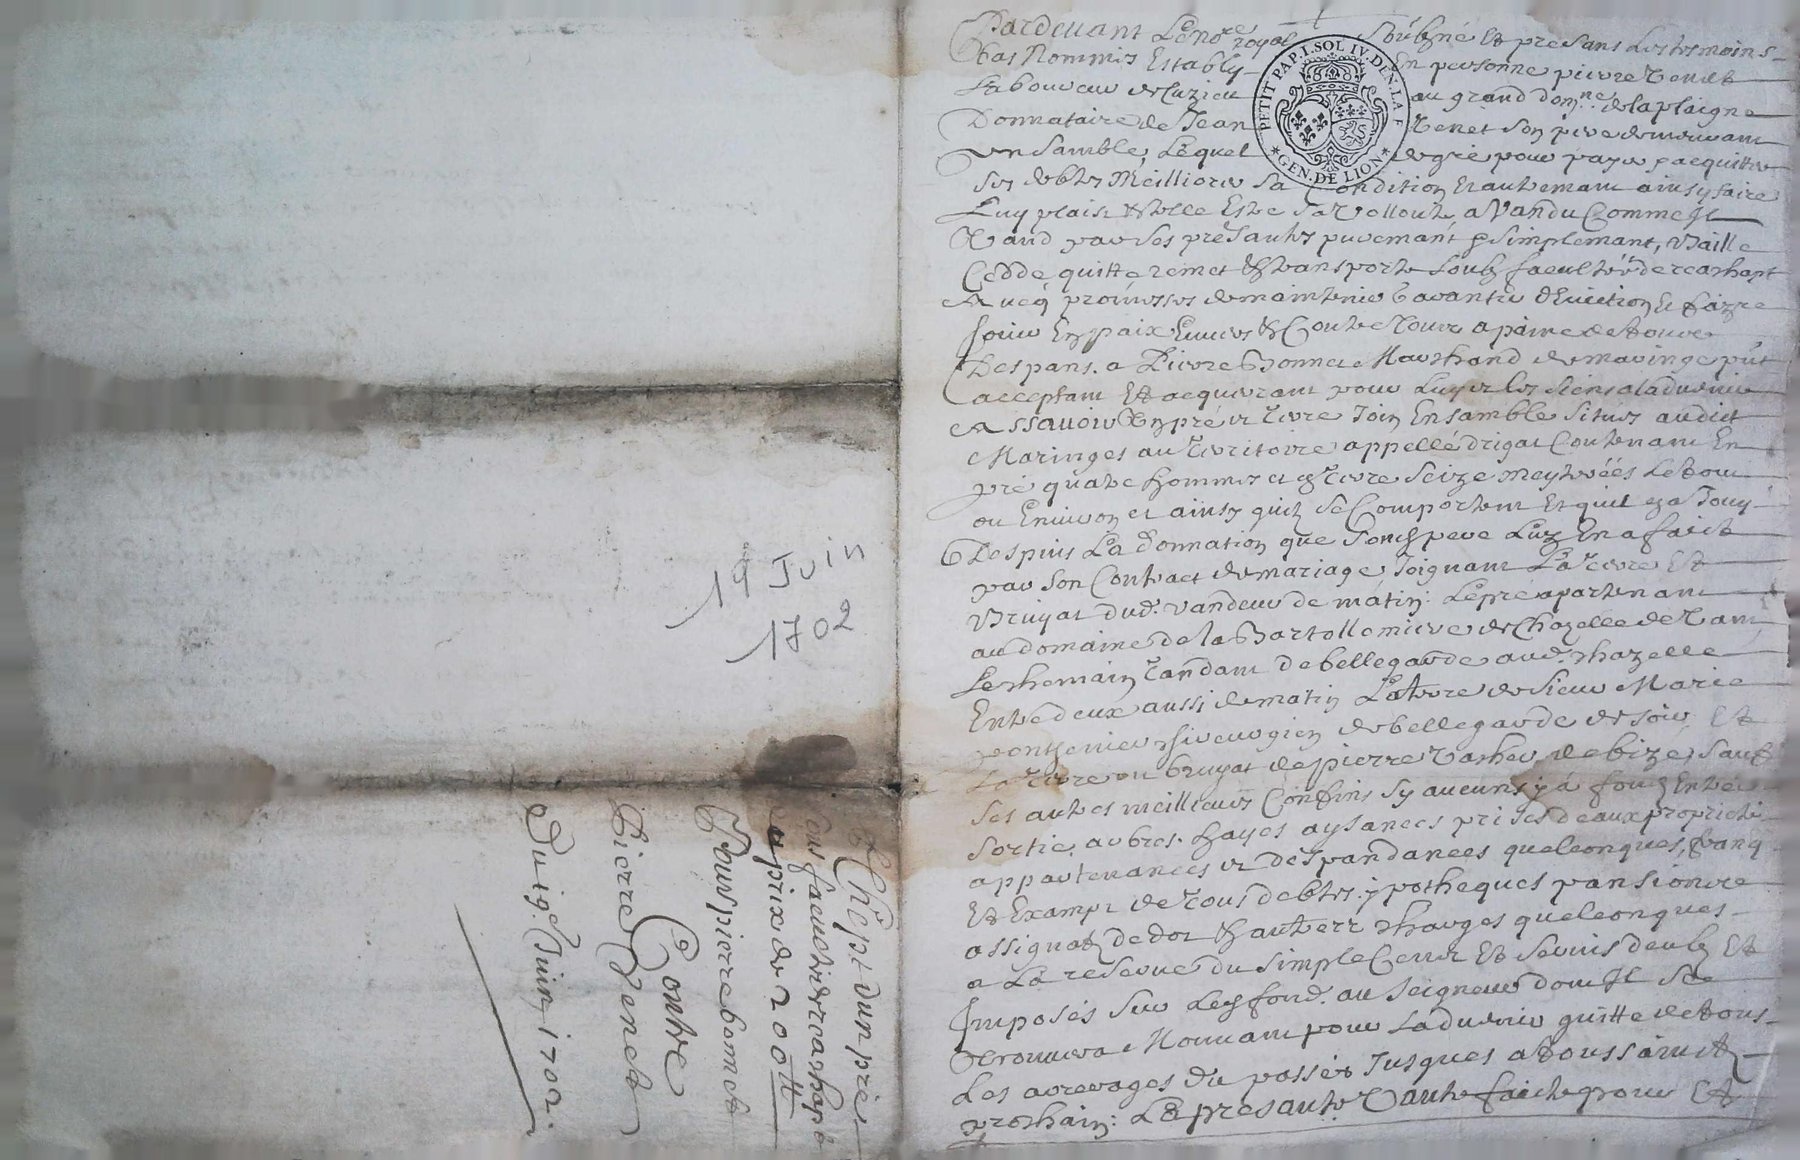 19 Juin
1702
Achept dun près
sous faculté de reachapt
a prix de 200 ₶
Pour pierre bonnet
Contre
Pierre Venet
Du 19.e Juin 1702.
PETIT PAP. I. SOL IV. DEN. LA F
GEN. DE LION
Pardevant Le no.re royal soubzné Et presans Les tesmoins
bas Nommés Estably En personne pierre Venet
Laboureur de Cuzieu au grand dom.ne de la plaigne
Donnataire de Jean Venet son pere demeurant
Ensamble, Lequel de gré pour payer & acquitter
ses debtes Meilliorer sa Condition Et autremant ainsy faire
Luy plaist & telle Este sa Vollonté, a Vandu Comme Il
Vand par ses presantes puremant & simplemant, Baille
Cedde quitte remet & transporte soubz faculté de reachapt
Avecq promesses de maintenir Garantir d'Eviction Et faire
Jouir En paix Envers & Contre Tous a paine de tous
Despans. a Pierre Bonnet Marchand de maringe pnt
acceptant Et acquerant pour Luy et les siens a ladvenir
Assavoir Un pré et terre Join Ensamble Situés audict
Maringes au Territoire appellé drigat Contenant En
pré quatre hommes et En Terre Seize meyterées Le tout
ou Environ et ainsy quilz se Comportent Et quil En a Jouy
Despuis La donnation que Sondt pere Luy En a faict
par son Contract de mariage, Joignant La Terre Et
Bruyat dud. Vandeur de matin: Le pré apartenant
au domaine de la Bartollomiere de Chazelle de
Le chemain Tandant de bellegarde aud. Chazelle
Entre deux aussi de matin La terre de Sieur Marie
ponthenier chirurgien de bellegarde de soir Et
La Terre ou bruyat de pierre Vacher de bize, sauf
Ses autres meilleurs Confins sy aucuns y a fond Entrée
Sortie, arbres. hayes aysances prises deaux proprietés
appartenances et despandances quelconques, franq
Et Exampt de Tous debtes. ypotheques pansions
assignatz de dot & autres Charges quelconques
a La reserve du simple Cens Et servis deubz Et
Imposés sur Lesd fond. au Seigneur dont Il se
trouvera Mouvant pour Ladvenir quitte de tous
Les arrerages du passés Jusques a toussainctz
prochain: La presante Vante faicte pour Et